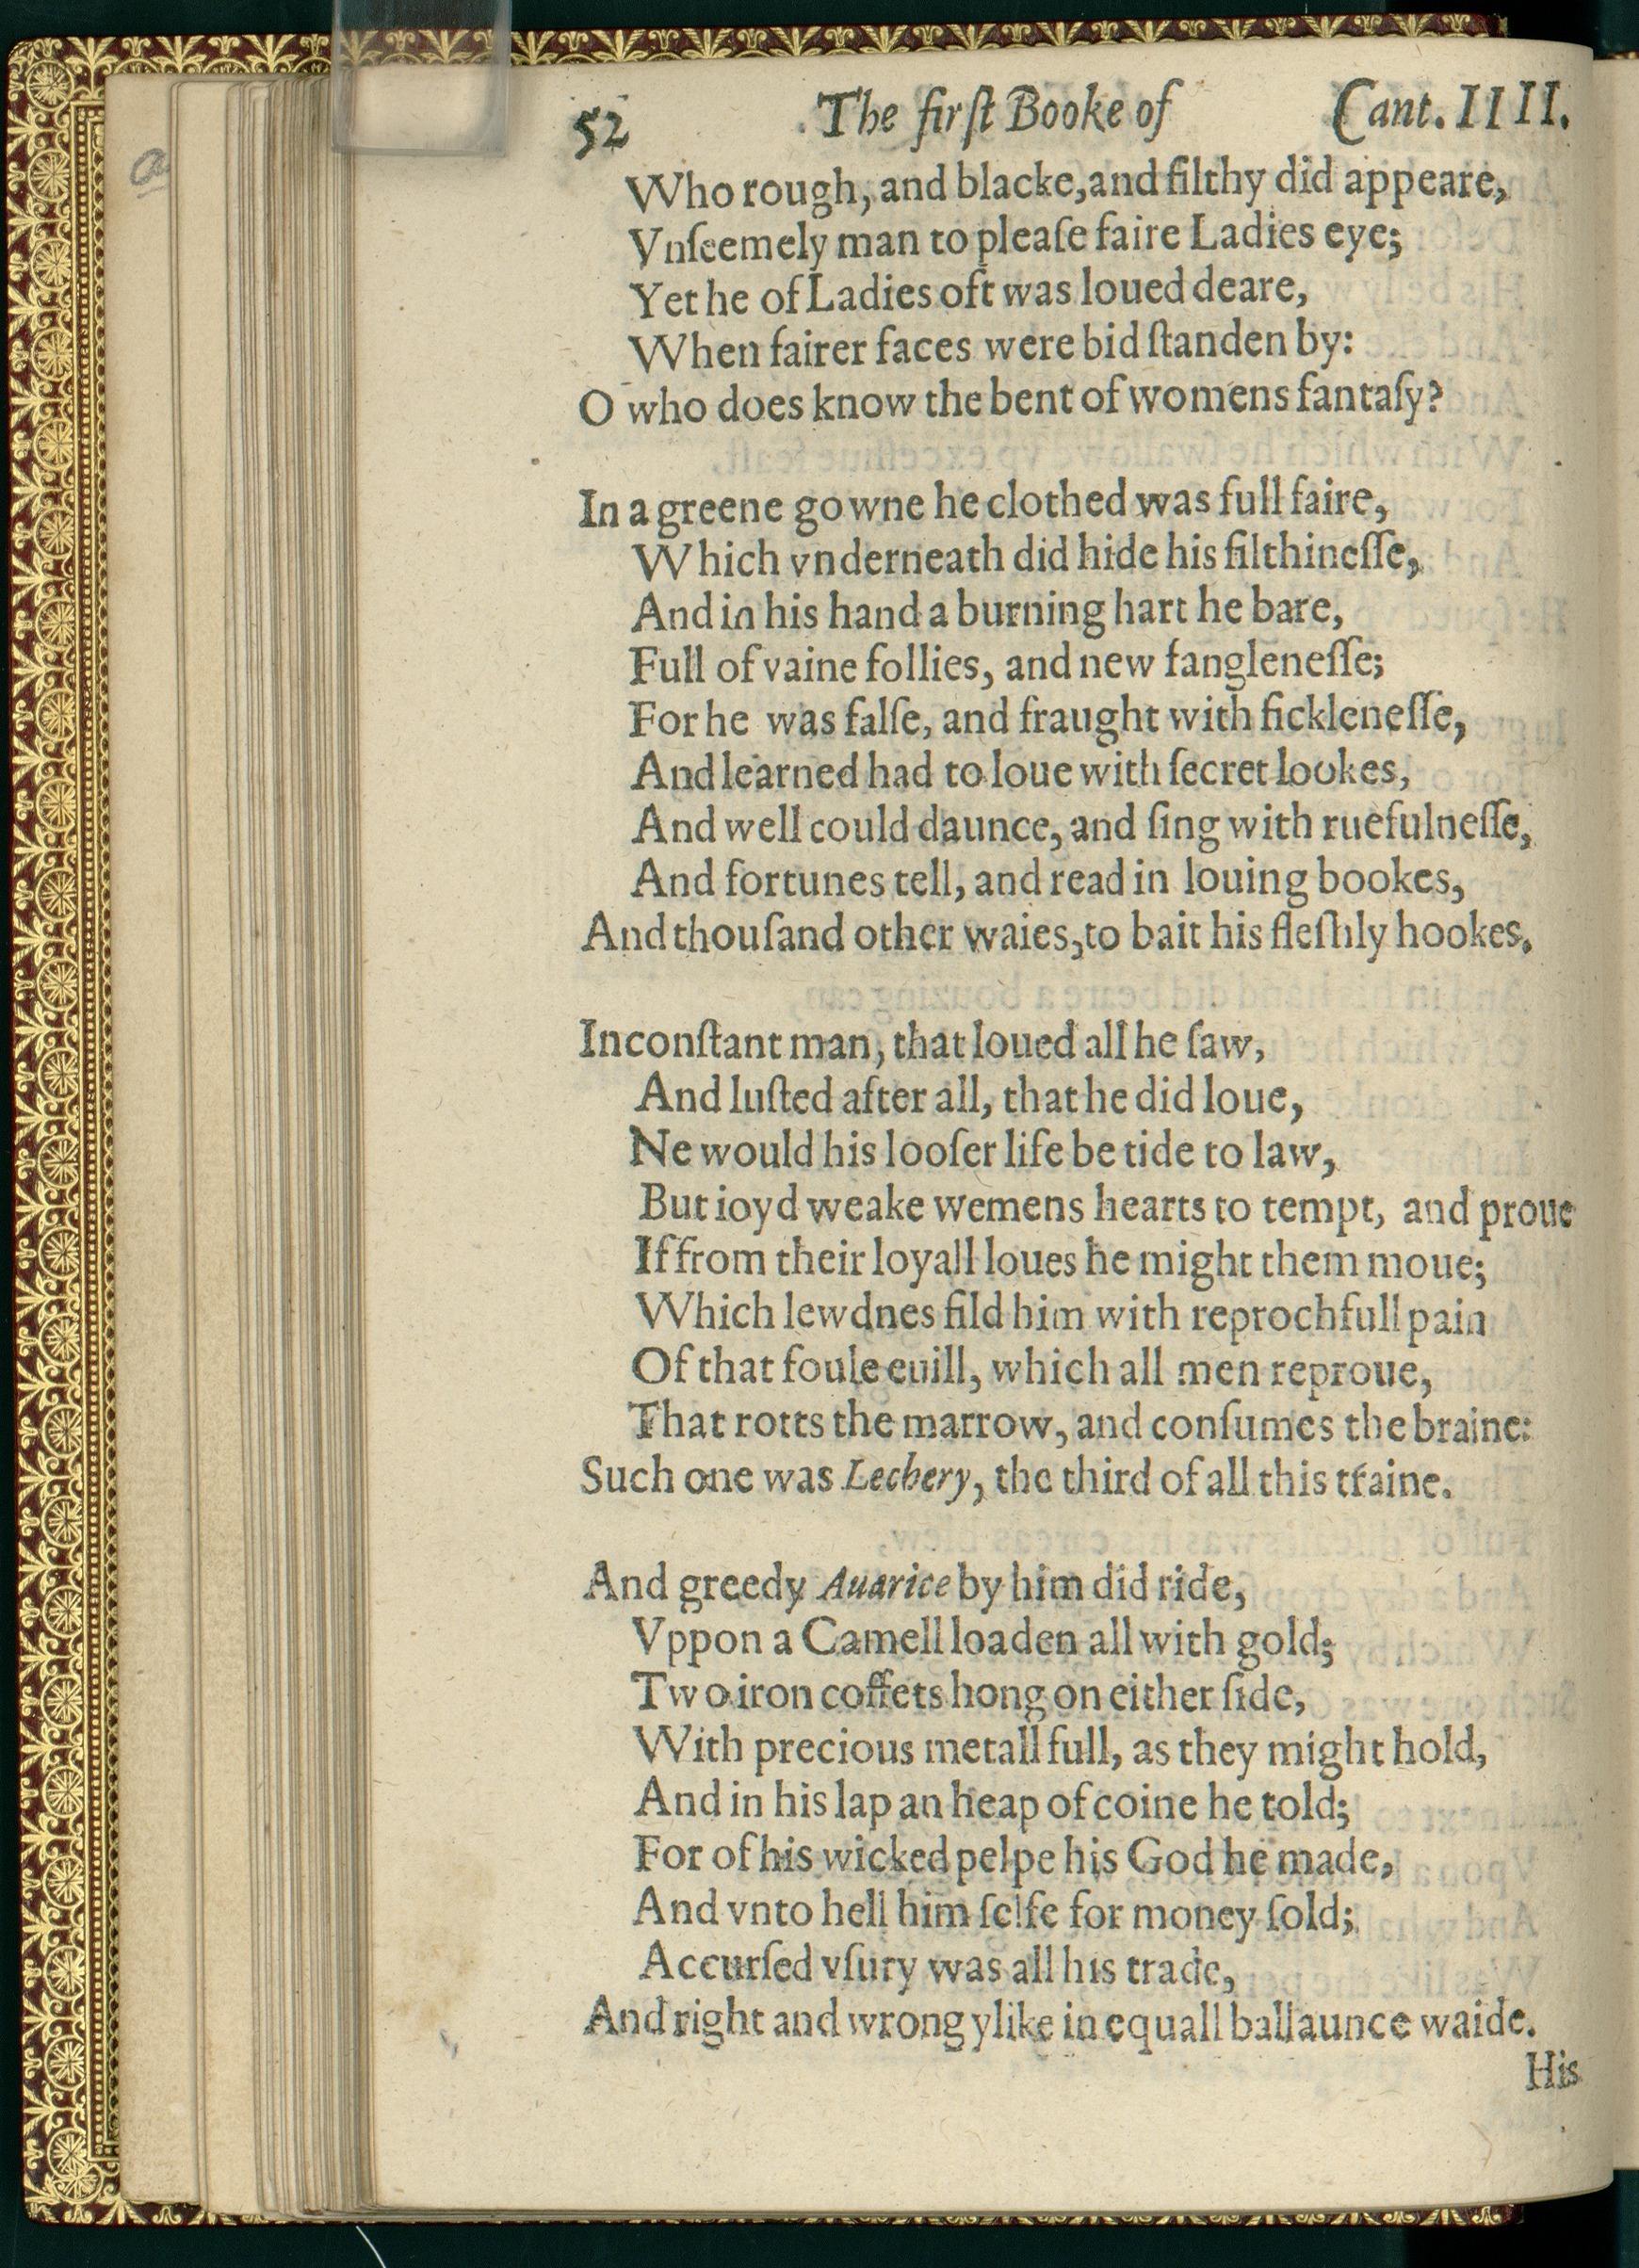 52 The firſt Booke of Cant. IIII.
Who rough, and blacke, and filthy did appeare,
Vnſeemely man to pleaſe faire Ladies eye;
Yet he of Ladies oft was loued deare,
When fairer faces were bid ſtanden by:
O who does know the bent of womens fantaſy?
In a greene gowne he clothed was full faire,
Which vnderneath did hide his filthineſſe,
And in his hand a burning hart he bare,
Full of vaine follies, and new fangleneſſe;
For he was falſe, and fraught with fickleneſſe,
And learned had to loue with ſecret lookes,
And well could daunce, and ſing with ruefulneſſe,
And fortunes tell, and read in louing bookes,
And thouſand other waies, to bait his fleſhly hookes.
Inconſtant man, that loued all he ſaw,
And luſted after all, that he did loue,
Ne would his looſer life be tide to law,
But ioyd weake wemens hearts to tempt, and proue
If from their loyall loues he might them moue;
Which lewdnes fild him with reprochfull pain
Of that foule euill, which all men reproue,
That rotts the marrow, and conſumes the braine:
Such one was Lechery, the third of all this traine.
And greedy Auarice by him did ride,
Vppon a Camell loaden all with gold;
Two iron coffets hong on either ſide,
With precious metall full, as they might hold,
And in his lap an heap of coine he told;
For of his wicked pelpe his God he made,
And vnto hell him ſelfe for money ſold;
Accurſed vſury was all his trade,
And right and wrong ylike in equall ballaunce waide.
His